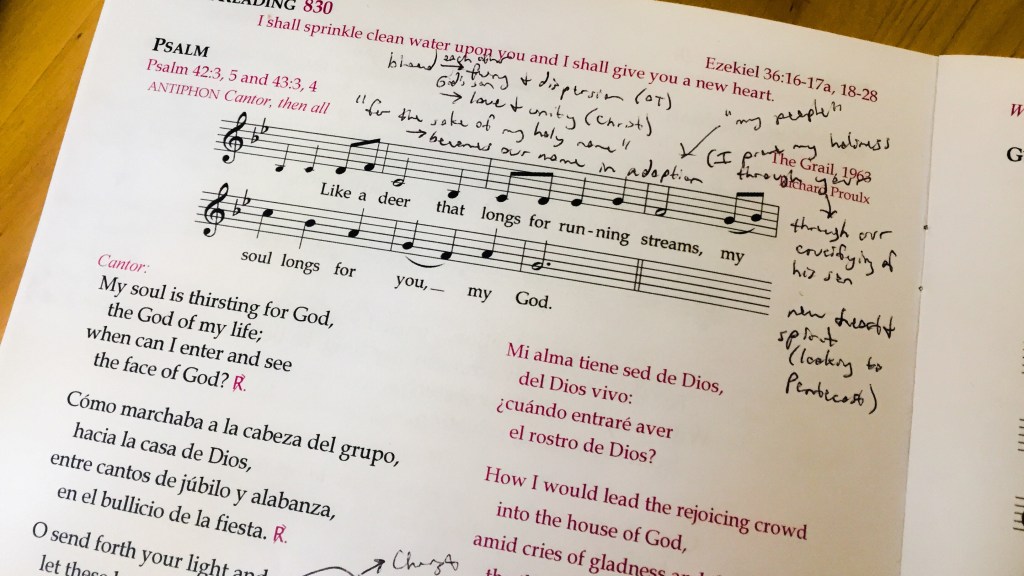 READING 830
I shall sprinkle clean water upon you and I shall give you a new heart.
Ezekiel 36:16-17a, 18-28
PSALM
Psalm 42:3, 5 and 43:3, 4
ANTIPHON Cantor, then all
The Grail, 1963
Richard Proulx
each other
God's son
→ fury & dispersion (OT)
→ love & unity (Christ)
"for the sake of my holy name"
→ becomes our name in adoption
"my people"
(I prove my holiness
through you
through our
crucifying of
his son
new heart &
spirit
(looking to
Pentecost)
Like a deer that longs for run-ning streams, my
soul longs for you,_ my God.
Cantor:
My soul is thirsting for God,
the God of my life;
when can I enter and see
the face of God? ℟.
Mi alma tiene sed de Dios,
del Dios vivo:
¿cuándo entraré a ver
el rostro de Dios?
Cómo marchaba a la cabeza del grupo,
hacia la casa de Dios,
entre cantos de júbilo y alabanza,
en el bullicio de la fiesta. ℟.
How I would lead the rejoicing crowd
into the house of God,
amid cries of gladness and
O send forth your light and
let these
→ Christ